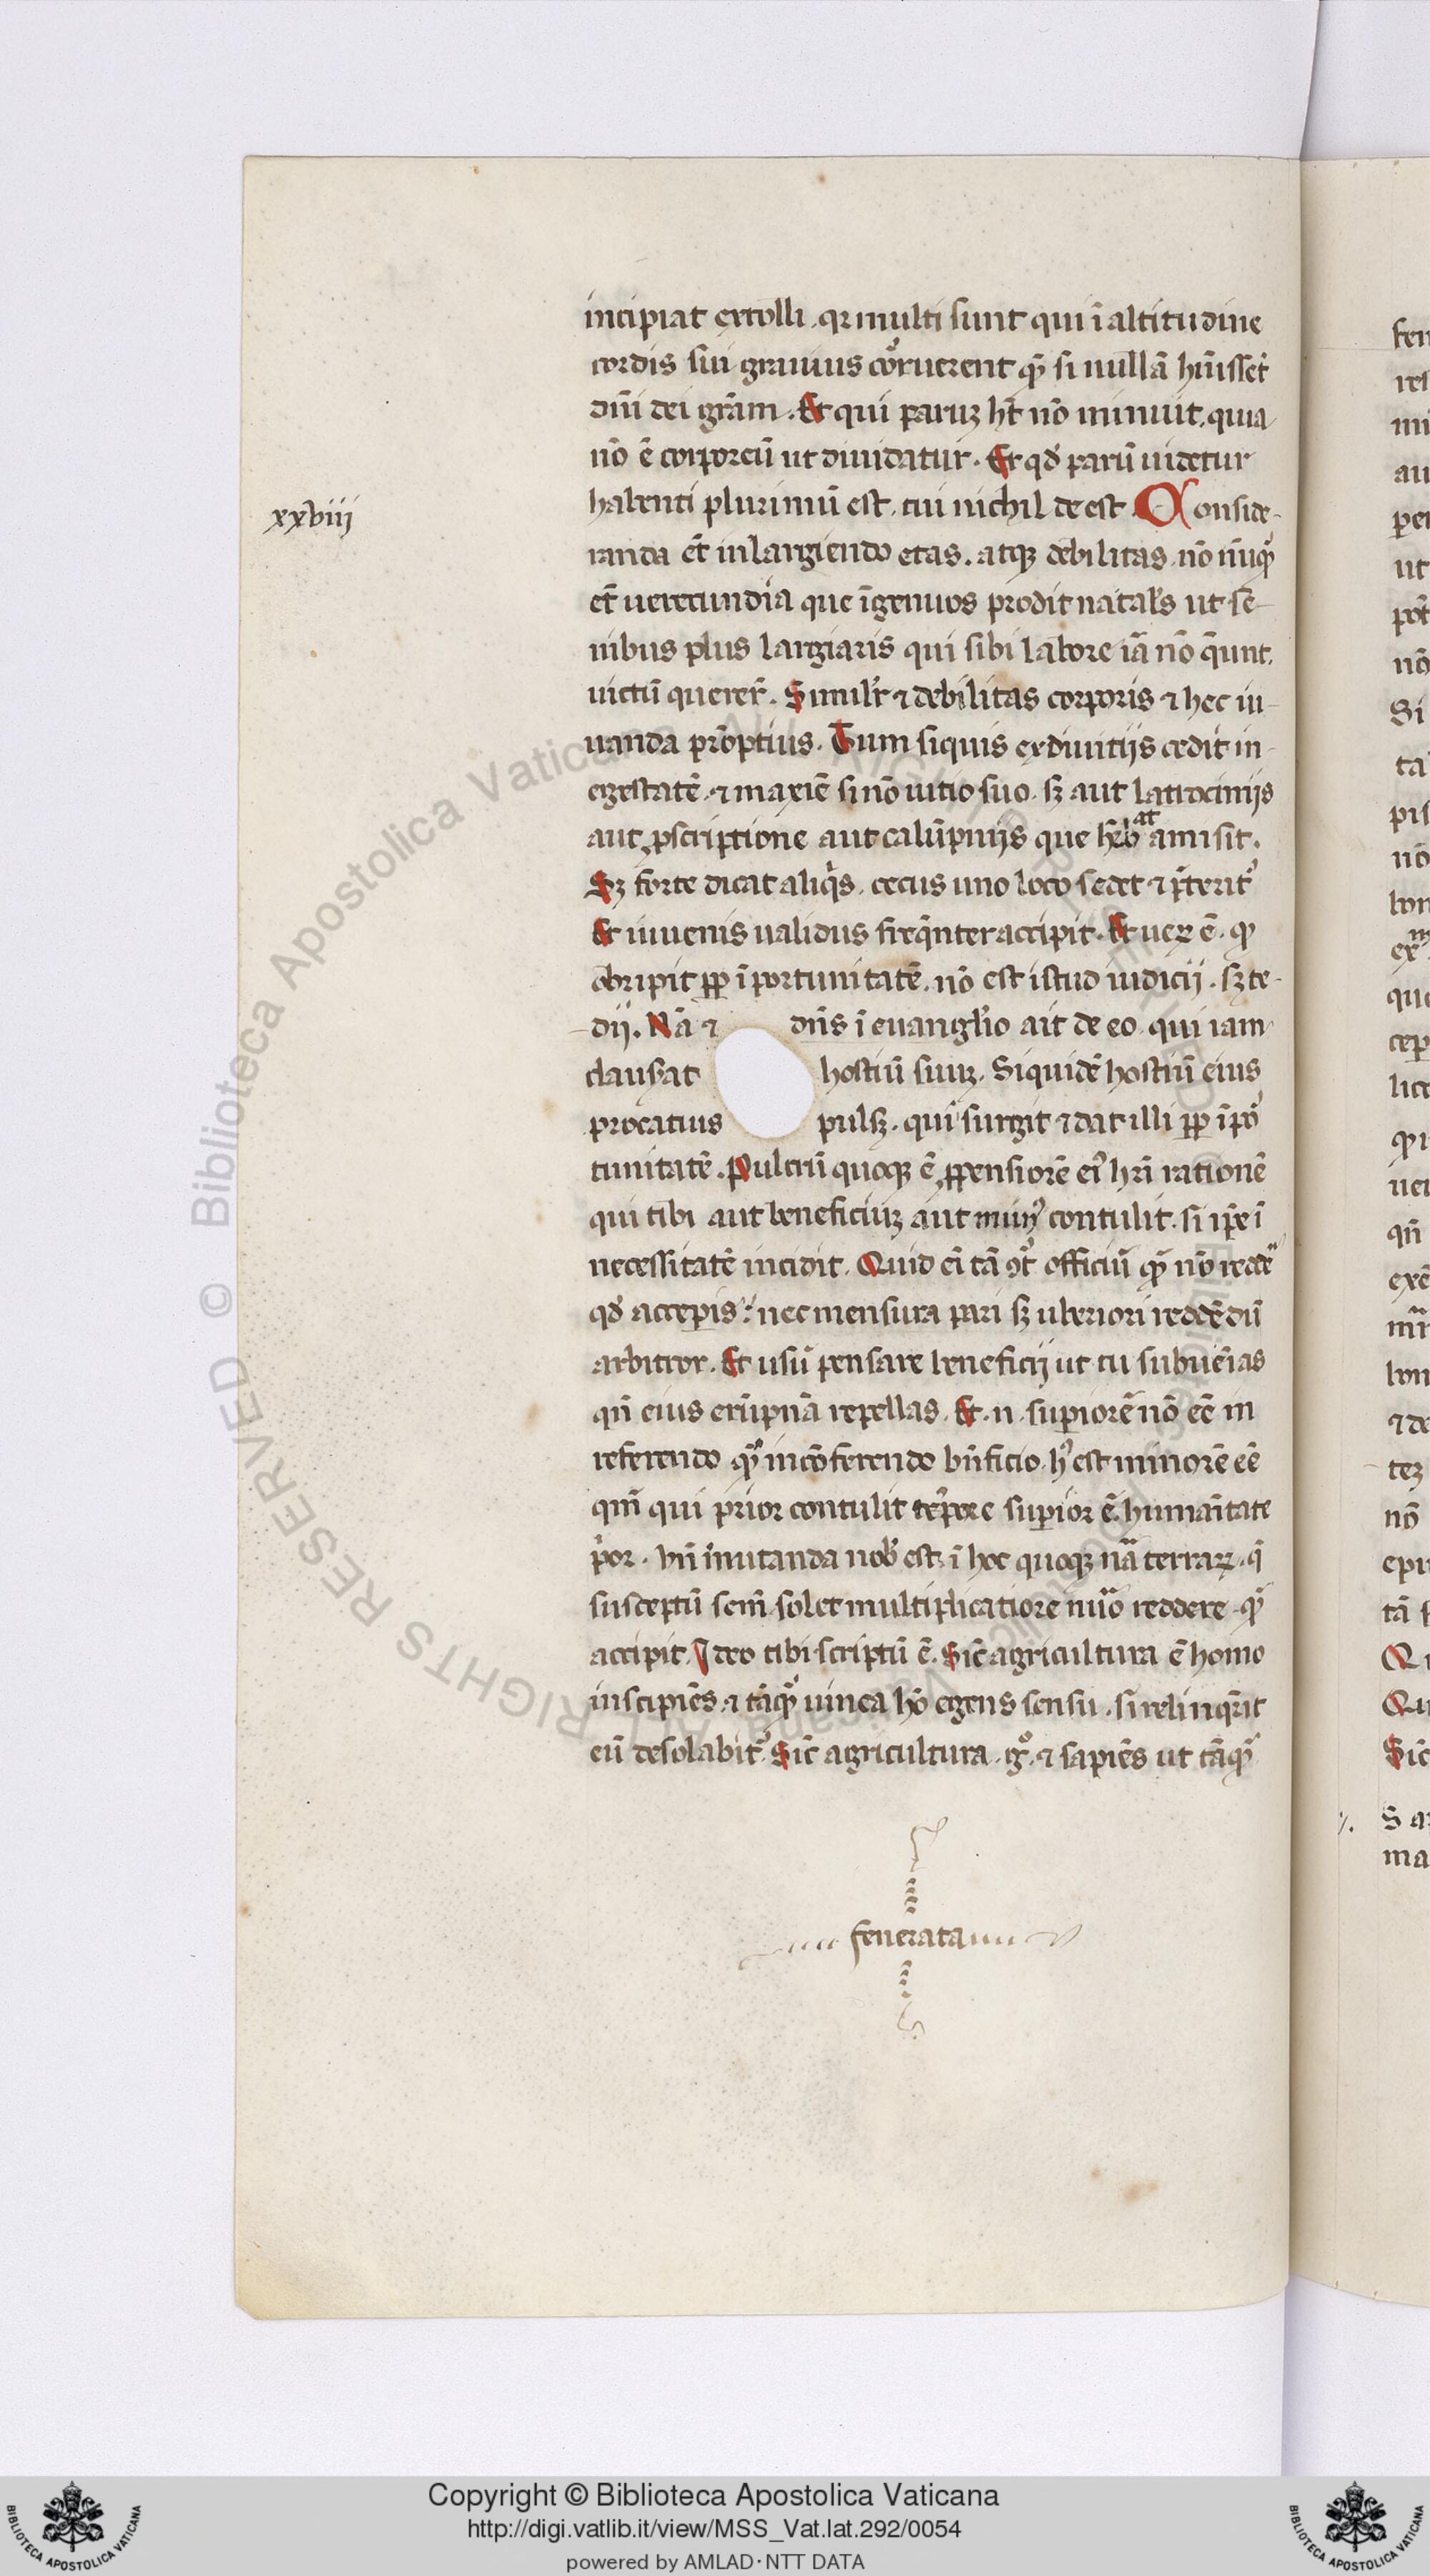 incipiat extolli. qr multi sunt qui ī altitudine
cordis sui grauius cōruerent qʒ si nullā hūissēt
diūi dei grām. Et qui paruʒ ht̄ nō minuit, quia
nō ē corporeū ut diuidatur. Et qđ parū uidetur
habenti plurimū est, cui nichil de est. Conside-
xxviii
randa et̄ in largiendo etas. atqʒ debilitas. nō nūqʒ
et̄ uerecundia que īgenuos prodit natales ut se-
nibus plus largiaris qui sibi labore iā nō q̄unt.
uictū querer̄. Simil'r ⁊ debilitas corporis ⁊ hec iu-
uanda prōptius. Tum siquis ex diuitijs cedit in
egestatē. ⁊ maxīe si nō uitio suo. sʒ aut latrocinijs
aut pscriptione aut calūpnijs que hēb at amisit.
Sʒ forte dicat aliq̄s. cecus uno loco sedet ⁊ p̄terit'
Et iuuenis ualidus freq̄nter accipit. Et ueꝝ ē. qʒ
obripit ꝓꝑ īportunitatē. nō est istud iudicij. sʒ te-
dij. Nā ⁊ dn̄s ī euangl'io ait de eo. qui iam
clauserat hostiū suuʒ. Siquidē hostiū eius
procatius pulsʒ. qui surgit ⁊ dat illi ꝓꝑ īpor
tunitatē. Pulcrū quoqʒ ē ꝓpensiorē ei' hr̄i rationē
qui tibi aut beneficiuʒ aut mun' contulit. si ip̄e ī
necessitatē incidit. Quid ei tā 9t̄ officiū qʒ nō reddē
qđ acceperis? nec mensura pari sʒ uberiori reddēdū
arbitror. Et usū pensare beneficij ut tu subueīas
qn̄ eius erūpnā repellas. Et. n. superiorē nō eē in
referendo qʒ in cōferendo bn̄ficio. h' est minorē eē
qm̄ qui prior contulit tēpore superior ē. humaītate
p̄or. Vn̄ īmutanda nob' est ī hoc quoqʒ nā terraꝝ. q̄
susceptū sem̄ solet multiplicatiore nūo reddere. qʒ
accipit. Ideo tibi scriptū ē. Sic̄ agricultura ē homo
inscipiēs. ⁊ tāqʒ uinea hō egens sensu. si relinq̄rit
eū desolabit'. Sic̄ agricultura. gº. ⁊ sapiēs ut tāqʒ
fenerata
© Biblioteca Apostolica Vaticana
ALL RIGHTS RESERVED
Copyright © Biblioteca Apostolica Vaticana
http://digi.vatlib.it/view/MSS_Vat.lat.292/0054
powered by AMLAD·NTT DATA
BIBLIOTECA APOSTOLICA VATICANA
BIBLIOTECA APOSTOLICA VATICANA